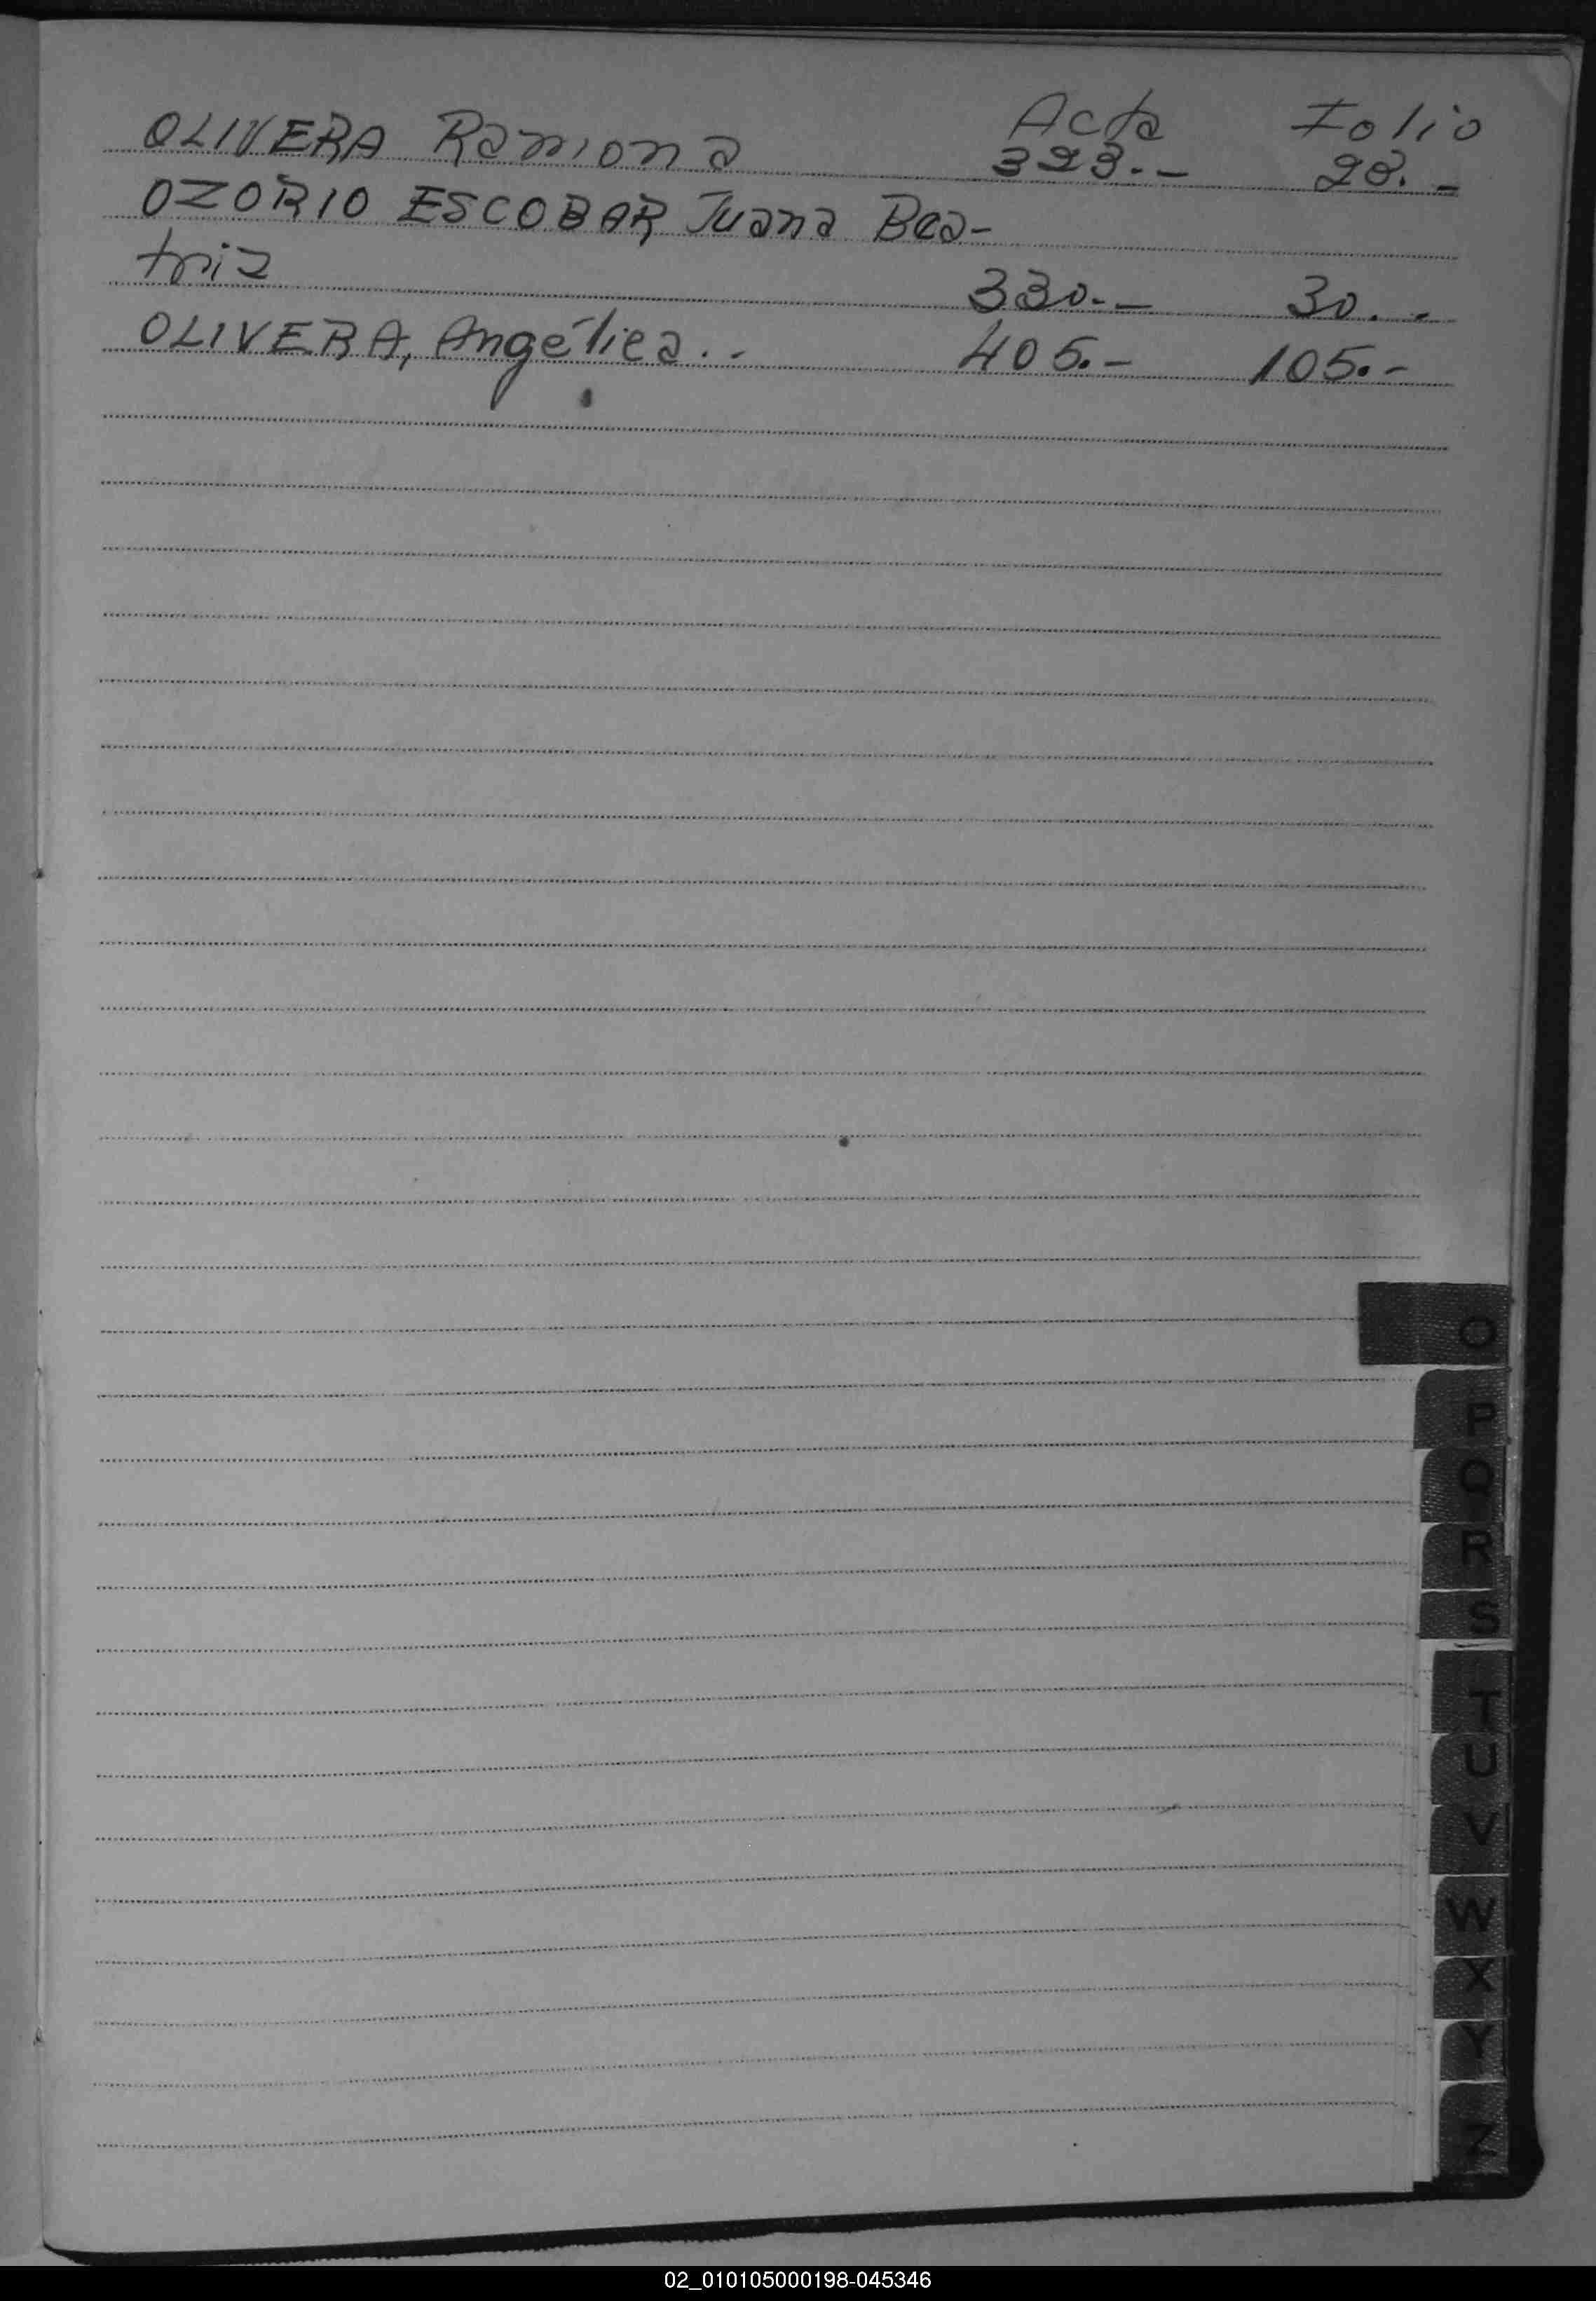 Acta Folio
OLIVERA Ramona 328.-- 28.-
OZORIO ESCOBAR Juana Bea-
triz 330.-- 30.-
OLIVERA, Angélica.- 405.- 105.-
O
P
Q
R
S
T
U
V
W
X
Y
Z
02_010105000198-045346